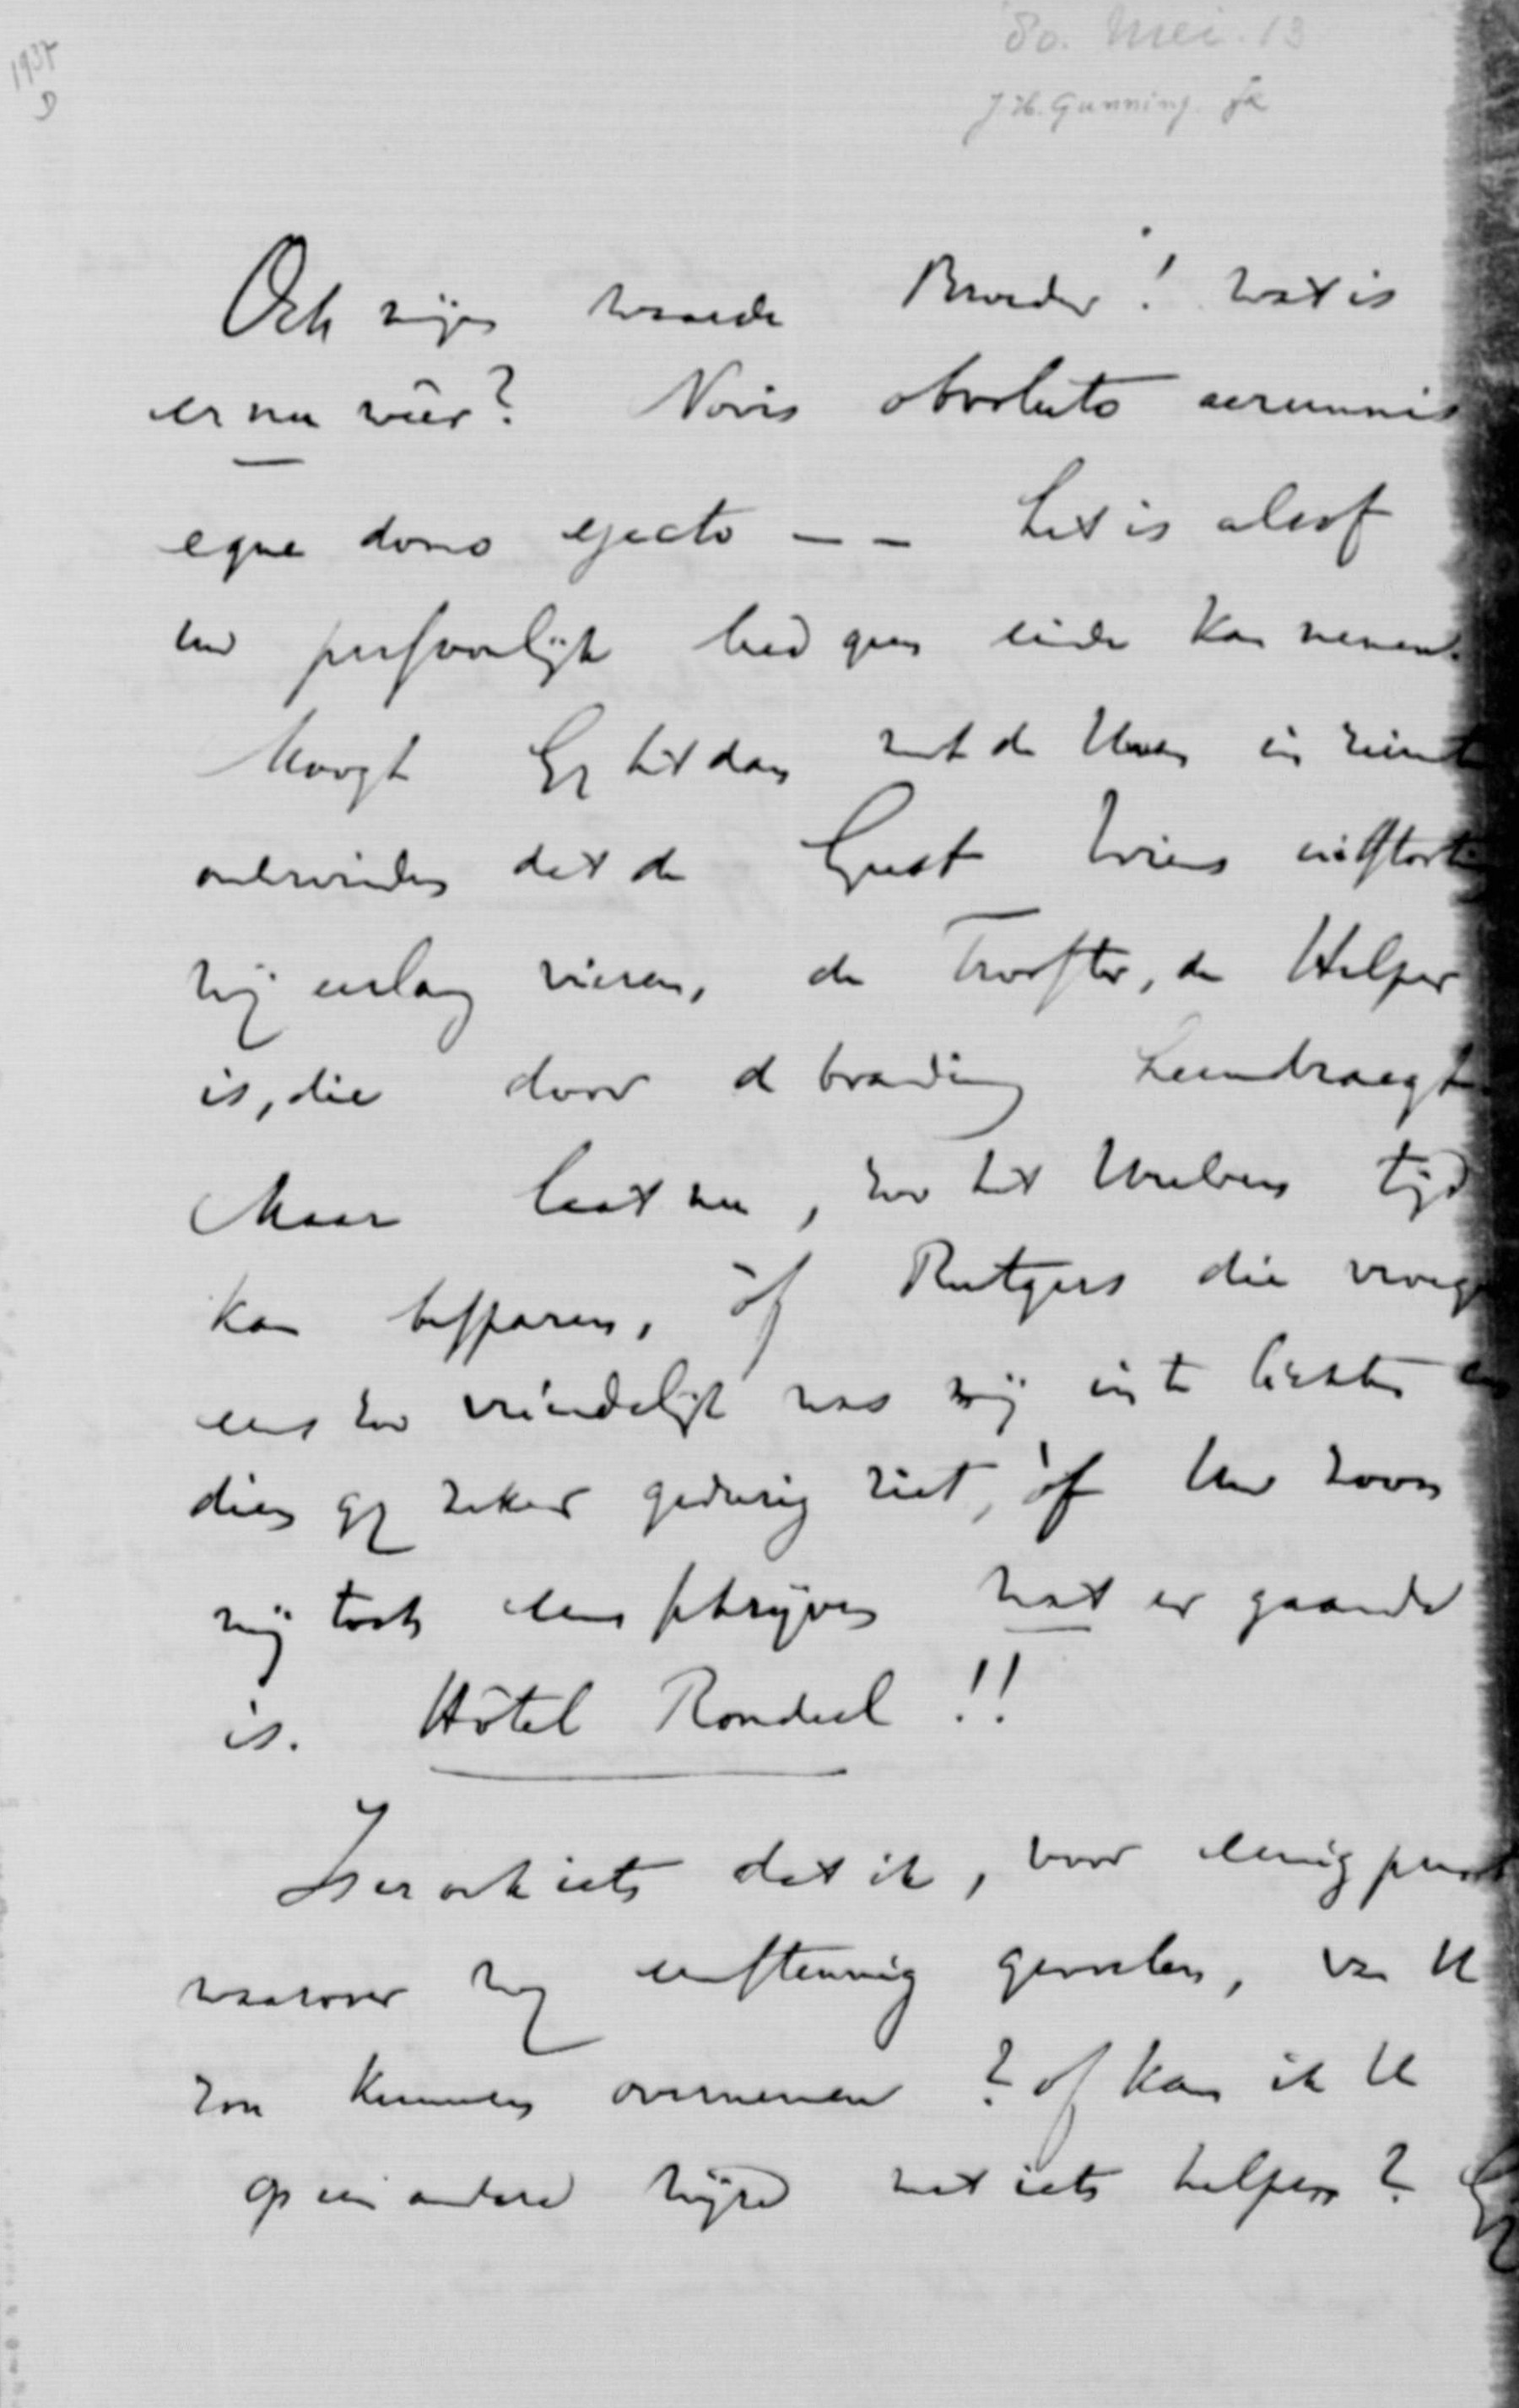 80. Mei. 13
J. H. Gunning. Jr
1937
D
Och mijn waarde Broeder! wat is
er nu wêer? Novis obvoluto aerumnis
eque domo ejecto -- het is alsof
uw persoonlijk leed geen einde kan nemen.
Moogt Gy het dan met de Uwen in ruimte
ondervinden dat de Geest wiens uitstorting
wij eerlang vieren, de Trooster, de Helper
is, die door de branding heendraagt
Maar laat nu, zoo het Uzelven tijd
kan besparen, òf Rutgers die vroeger
eens zoo vriendelijk was mij in te lichten en
dien gy zeker gedurig ziet, òf Uw zoon
mij toch eens schrijven wat er gaande
is. Hôtel Rondeel!!
Is er ook iets dat ik, voor eenig punt
waarover wy eenstemmig gevoelen, van U
zou kunnen overnemen? of kan ik U
op een andere wijze met iets helpen? Gy